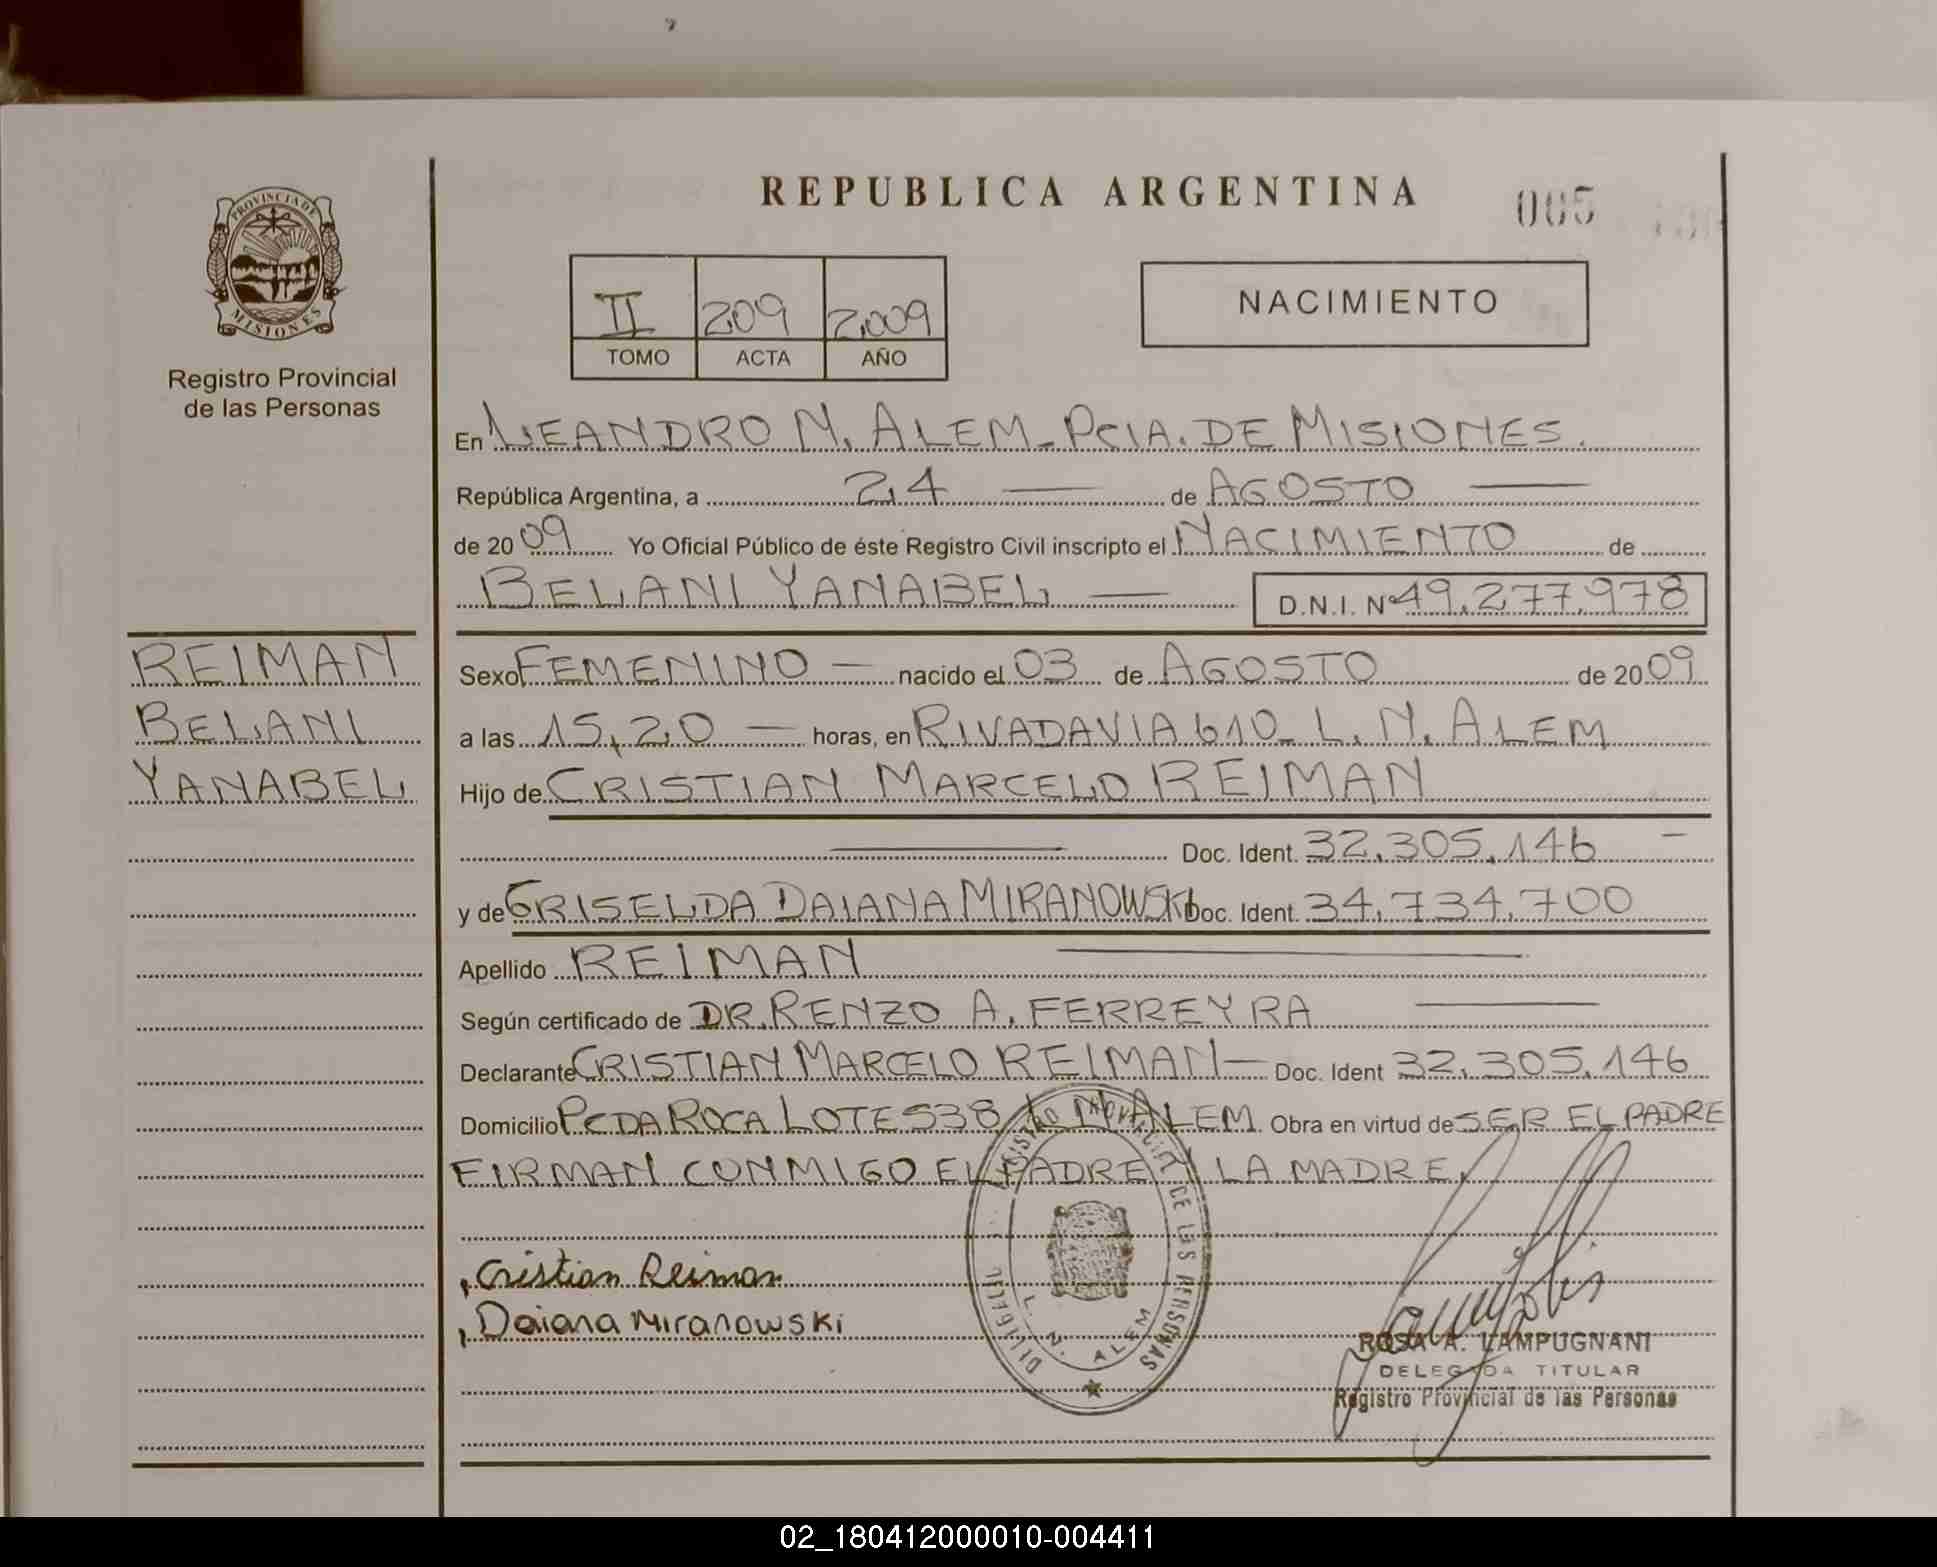 REPUBLICA ARGENTINA
005
PROVINCIA DE
MISIONES
Registro Provincial
de las Personas
II 209 2.009
TOMO ACTA AÑO
NACIMIENTO
En LEANDRO N. ALEM - PCIA. DE MISIONES.
República Argentina, a 24 — de AGOSTO —
de 20 09 Yo Oficial Público de éste Registro Civil inscripto el NACIMIENTO de
BELANI YANABEL — D.N.I. Nº 49.277.978
REIMAN
BELANI
YANABEL
Sexo FEMENINO — nacido el 03 de AGOSTO de 20 09
a las 15,20 — horas, en RIVADAVIA 610 - L. N. ALEM
Hijo de CRISTIAN MARCELO REIMAN
— Doc. Ident. 32.305.146 —
y de GRISELDA DAIANA MIRANOWSKI Doc. Ident. 34.734.700
Apellido REIMAN —
Según certificado de DR. RENZO A. FERREYRA —
Declarante CRISTIAN MARCELO REIMAN — Doc. Ident 32.305.146
Domicilio PCDA ROCA LOTE 538 L. N. ALEM Obra en virtud de SER EL PADRE
FIRMAN CONMIGO EL PADRE Y LA MADRE.
Cristian Reiman
Daiana Miranowski
REGISTRO PROVINCIAL DE LAS PERSONAS
L. N. ALEM
ROSA A. LAMPUGNANI
DELEGADA TITULAR
Registro Provincial de las Personas
02_180412000010-004411